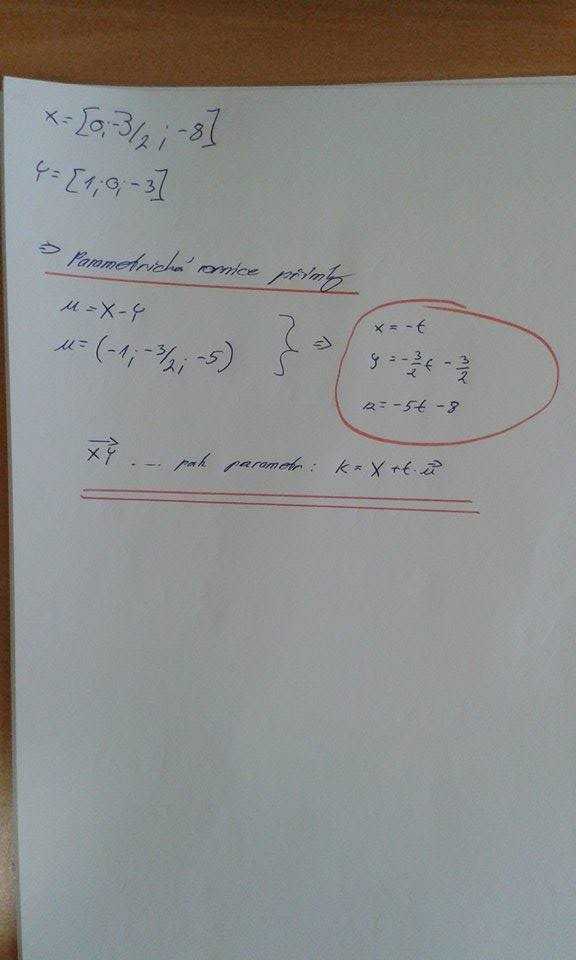 X=[0;-3/2;-8]
Y=[1;0;-3]
⇒ Parametrická rovnice přímky
u=X-Y
u=(-1;-3/2;-5) } ⇒
x=-t
y=-3/2t-3/2
z=-5t-8
XY⃗ .... pak parametr: k=X+t.u⃗